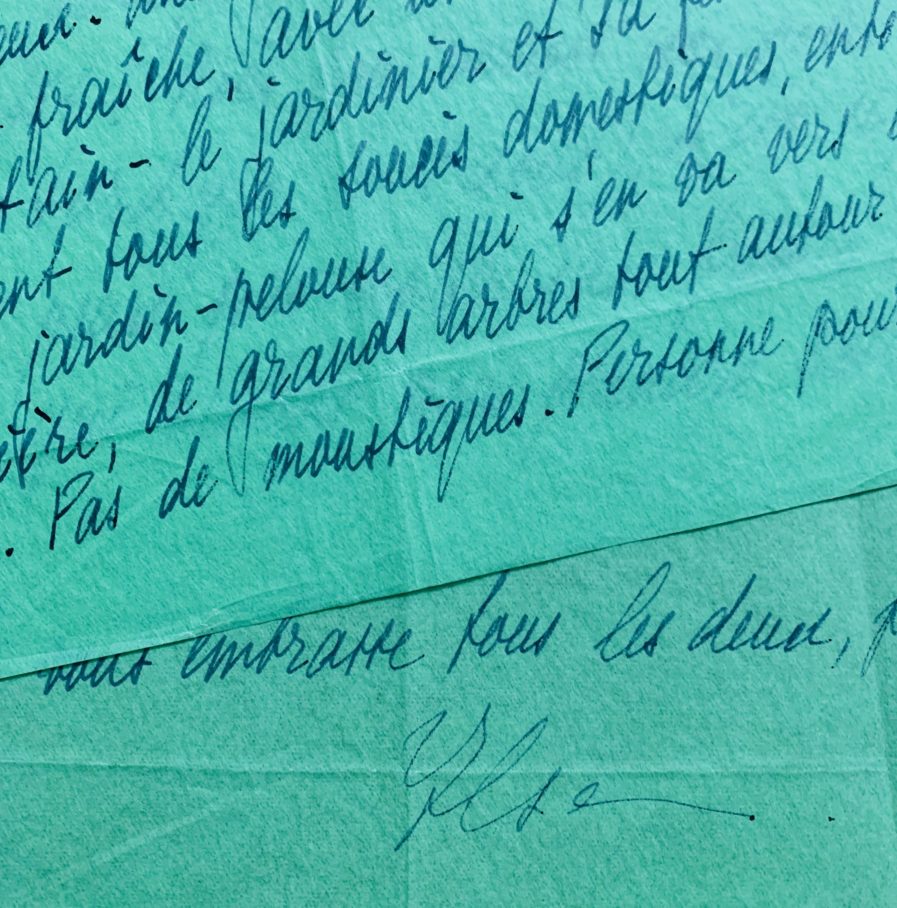 fraîche, avec
tain - le jardinier et sa
ent tous les soucis domestiques,
jardin-pelouse qui s'en va vers
ère, de grands arbres tout autour
. Pas de moustiques. Personne pour
vous embrasse tous les deux,
Elsa